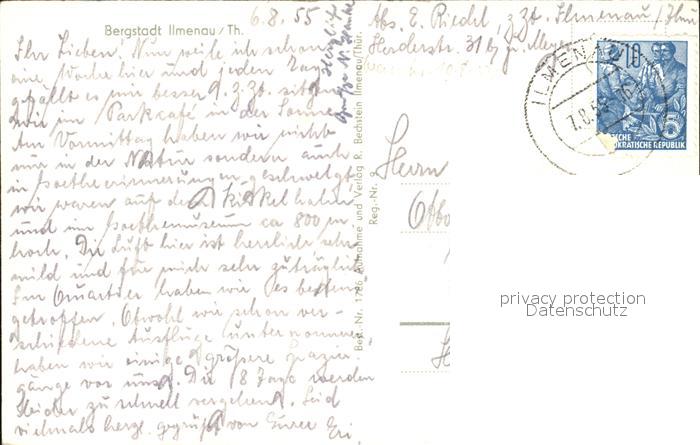 6.8.55
Bergstadt Ilmenau/Th.
Ihr Lieben! Nun weile ich schon
eine Woche hier und jeden Tag
gefällt es mir besser. z. Zt. sitzen
wir im Parkcafé in der Sonne.
Am Vormittag haben wir nicht
nur in der Natur sondern auch
in Goetheerinnerungen geschwelgt,
wir waren auf dem Kickelhahn
und im Goethemuseum ca 800 m
hoch. Die Luft hier ist herrlich sehr
mild und für mich sehr zuträglich
Im Quartier haben wir es bestens
getroffen. Obwohl wir schon ver-
schiedene Ausflüge unternommen,
haben wir einige größere Spazier
gänge vor uns. Die 18 Tage werden
leider zu schnell vergehen. Seid
vielmals herzl. gegrüßt von Eurer Eri.
Herzliche
Grüße
Best.-Nr. 1786 Aufnahme und Verlag R. Bechstein Ilmenau/Thür.
Reg.-Nr. 9
Abs. E. Riedel, z. Zt. Ilmenau/Thür
Herderstr. 31 b/
Herrn
Otto
ILMENAU
7.8.55
10
5
DEUTSCHE
DEMOKRATISCHE REPUBLIK
privacy protection
Datenschutz